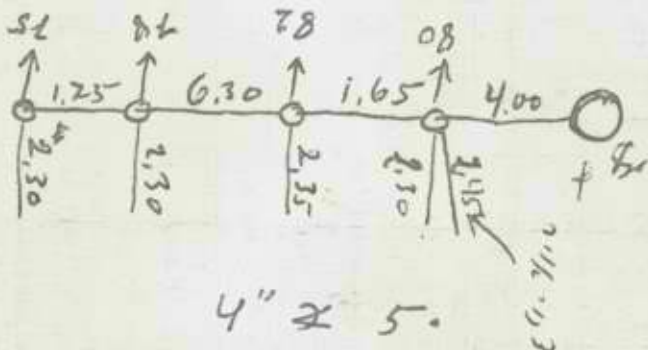 80
82
78
75
1,25
6.30
1,65
4.00
2,30
2,30
2,35
2,30
2,45
4" 5.